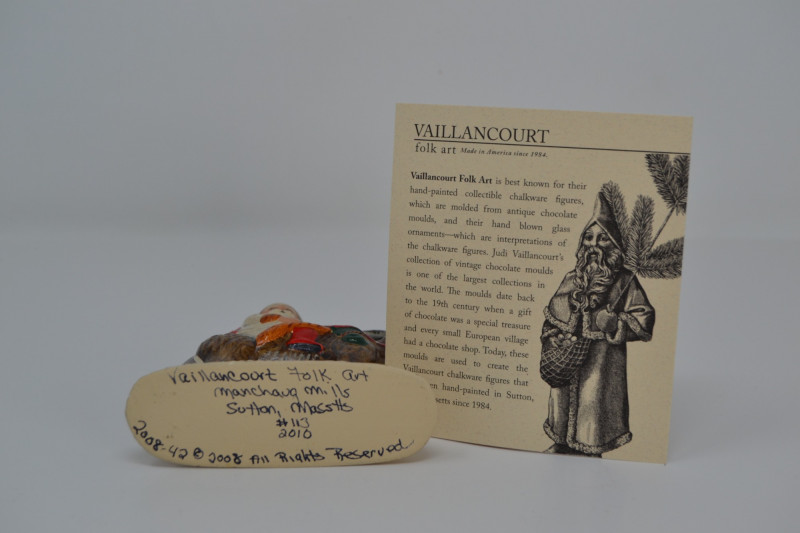 Vaillancourt Folk Art
Manchaug Mills
Sutton, Masstts
#113
2010
2008-42 © 2008 All Rights Reserved
VAILLANCOURT
folk art Made in America since 1984.
Vaillancourt Folk Art is best known for their
hand-painted collectible chalkware figures,
which are molded from antique chocolate
moulds, and their hand blown glass
ornaments—which are interpretations of
the chalkware figures. Judi Vaillancourt's
collection of vintage chocolate moulds
is one of the largest collections in
the world. The moulds date back
to the 19th century when a gift
of chocolate was a special treasure
and every small European village
had a chocolate shop. Today, these
moulds are used to create the
Vaillancourt chalkware figures that
hand-painted in Sutton,
since 1984.